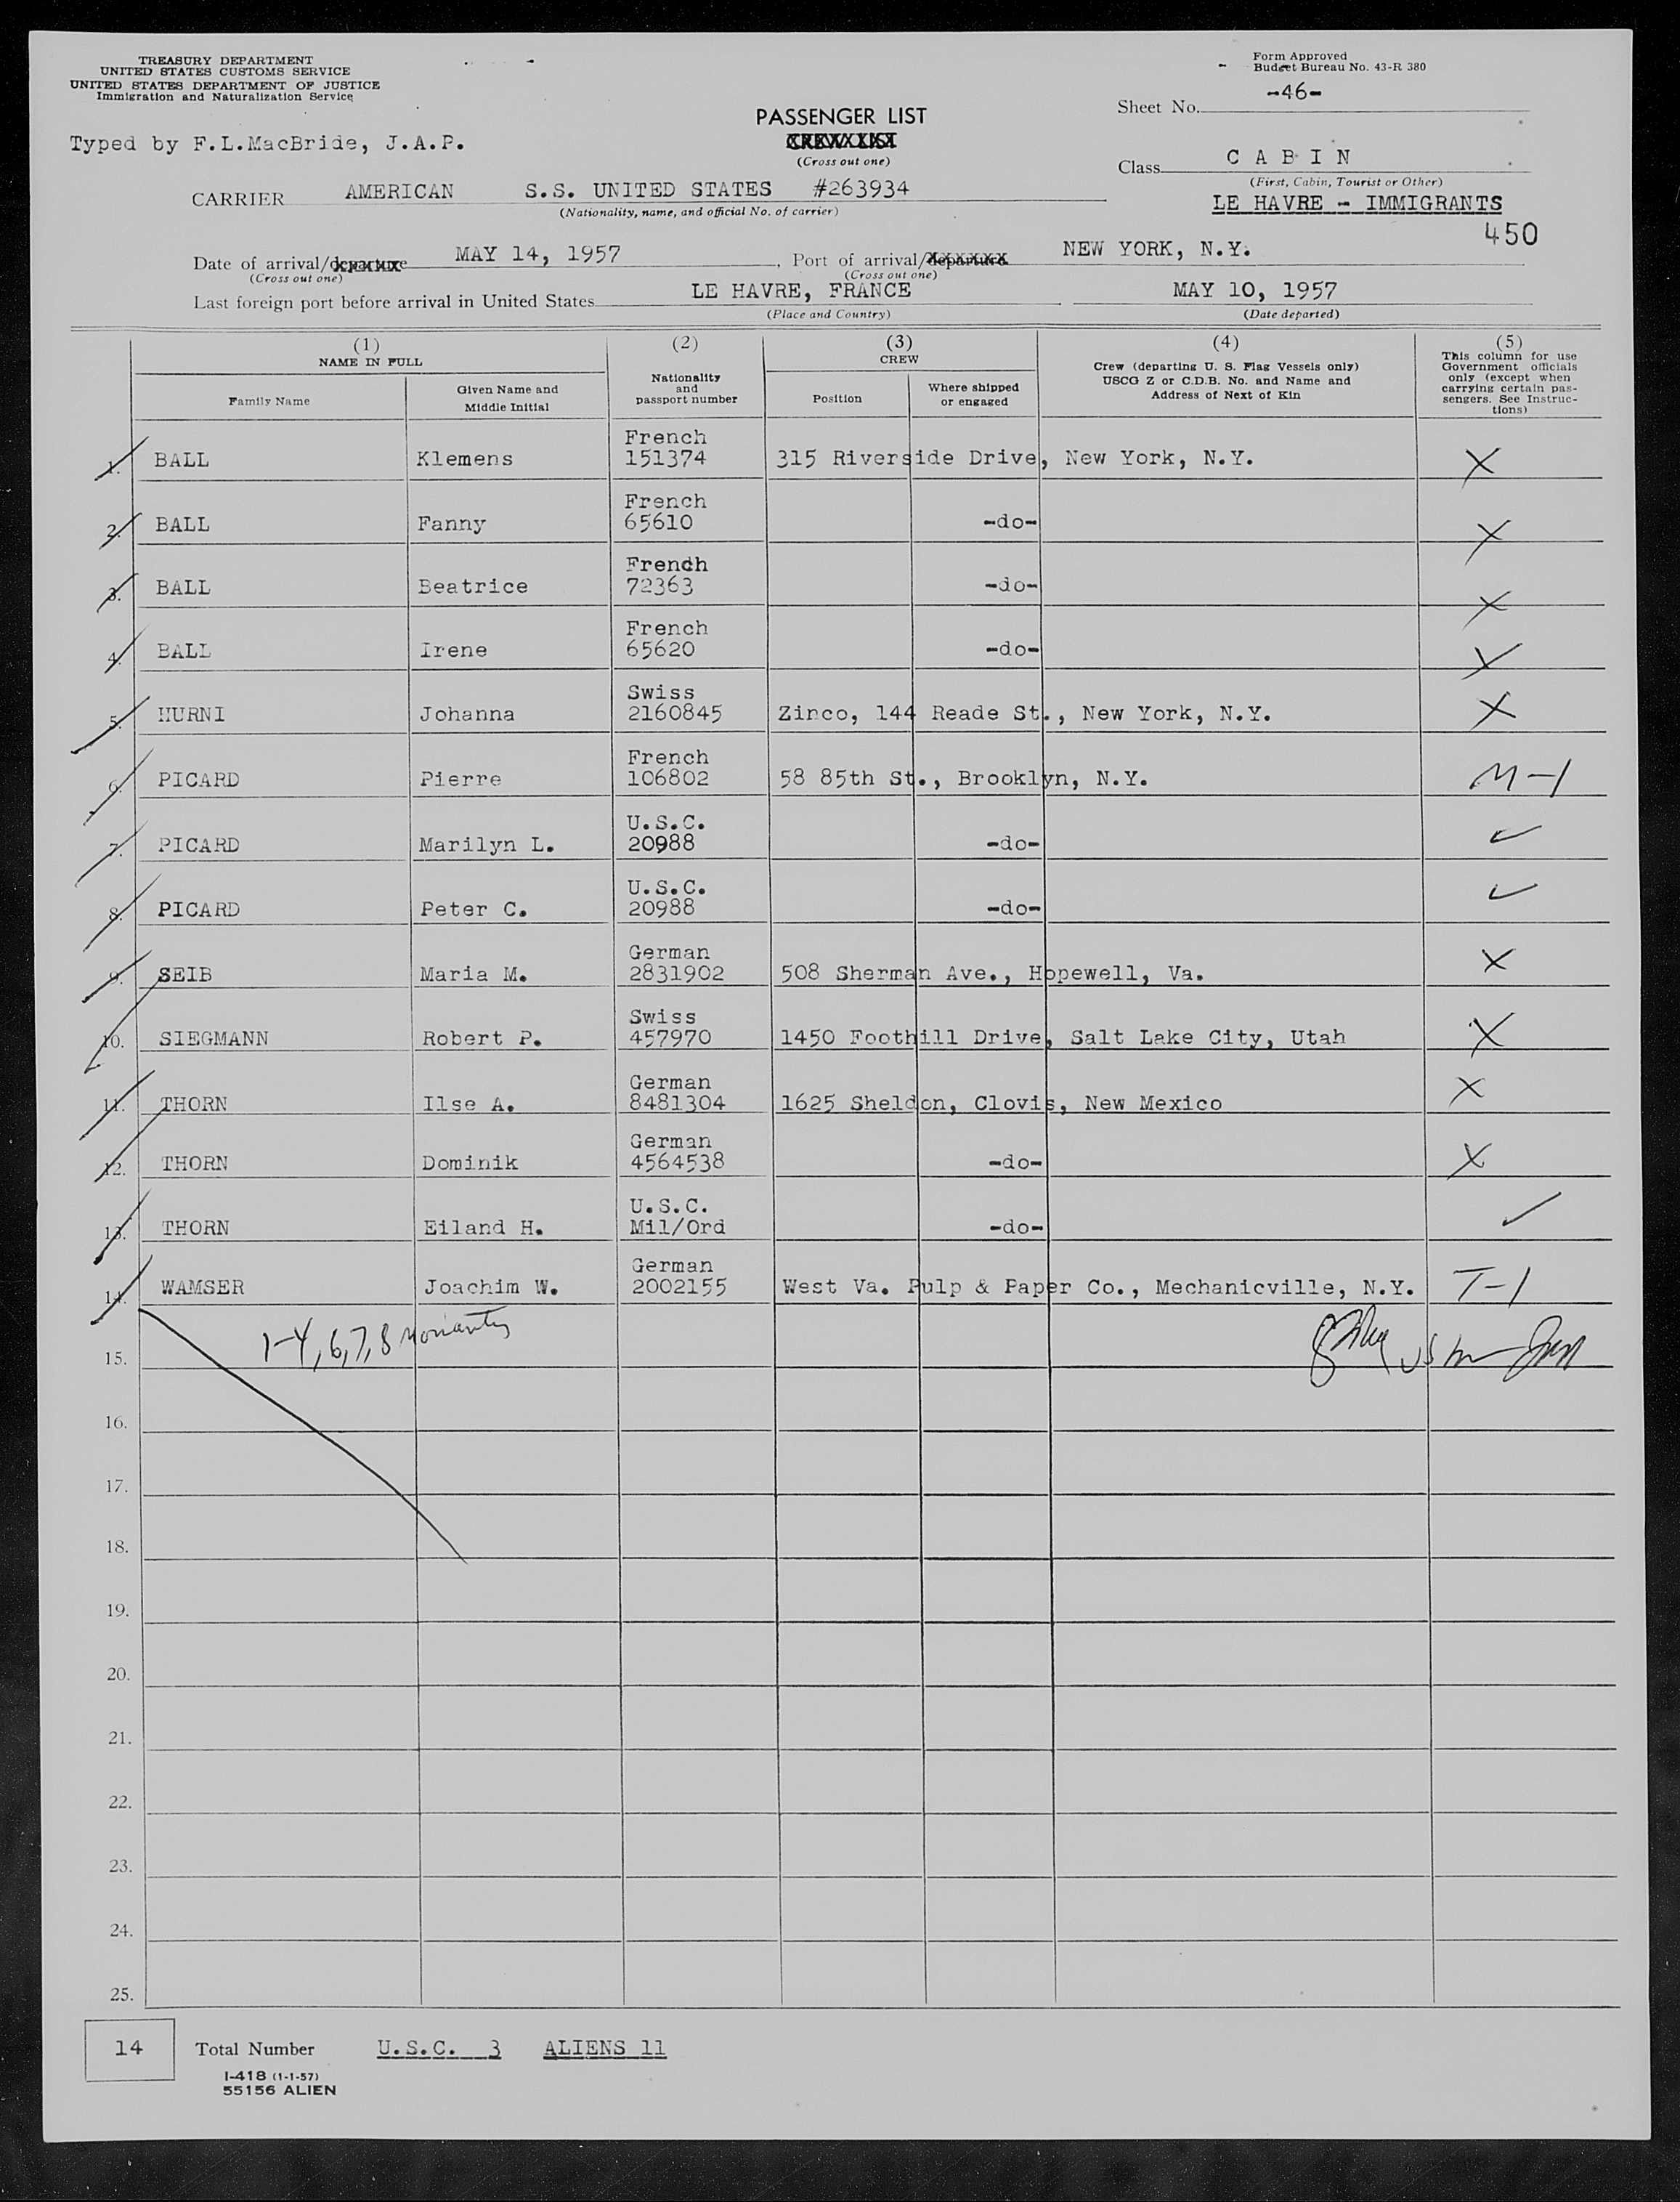 TREASURY DEPARTMENT
UNITED STATES CUSTOMS SERVICE
UNITED STATES DEPARTMENT OF JUSTICE
Immigration and Naturalization Service
Form Approved
Budget Bureau No. 43-R 380
Typed by F.L.MacBride, J.A.P.
PASSENGER LIST
CREW LIST
(Cross out one)
Sheet No. -46-
Class C A B I N
(First, Cabin, Tourist or Other)
CARRIER AMERICAN S.S. UNITED STATES #263934
(Nationality, name, and official No. of carrier)
LE HAVRE - IMMIGRANTS
450
Date of arrival/departure MAY 14, 1957, Port of arrival/departure NEW YORK, N.Y.
(Cross out one) (Cross out one)
Last foreign port before arrival in United States LE HAVRE, FRANCE MAY 10, 1957
(Place and Country) (Date departed)
(1) NAME IN FULL
Family Name
Given Name and Middle Initial
(2) Nationality and passport number
(3) CREW
Position
Where shipped or engaged
(4) Crew (departing U. S. Flag Vessels only) USCG Z or C.D.B. No. and Name and Address of Next of Kin
(5) This column for use Government officials only (except when carrying certain passengers. See Instructions)
1. BALL Klemens French 151374 315 Riverside Drive, New York, N.Y. X
2. BALL Fanny French 65610 -do- X
3. BALL Beatrice Frendh 72363 -do- X
4. BALL Irene French 65620 -do- X
5. HURNI Johanna Swiss 2160845 Zinco, 144 Reade St., New York, N.Y. X
6. PICARD Pierre French 106802 58 85th St., Brooklyn, N.Y. M-1
7. PICARD Marilyn L. U.S.C. 20988 -do- ✓
8. PICARD Peter C. U.S.C. 20988 -do- ✓
9. SEIB Maria M. German 2831902 508 Sherman Ave., Hopewell, Va. X
10. SIEGMANN Robert P. Swiss 457970 1450 Foothill Drive, Salt Lake City, Utah X
11. THORN Ilse A. German 8481304 1625 Sheldon, Clovis, New Mexico X
12. THORN Dominik German 4564538 -do- X
13. THORN Eiland H. U.S.C. Mil/Ord -do- ✓
14. WAMSER Joachim W. German 2002155 West Va. Pulp & Paper Co., Mechanicville, N.Y. T-1
1-4, 6, 7, 8 Moriarity
15.
16.
17.
18.
19.
20.
21.
22.
23.
24.
25.
14 Total Number U.S.C. 3 ALIENS 11
I-418 (1-1-57)
55156 ALIEN